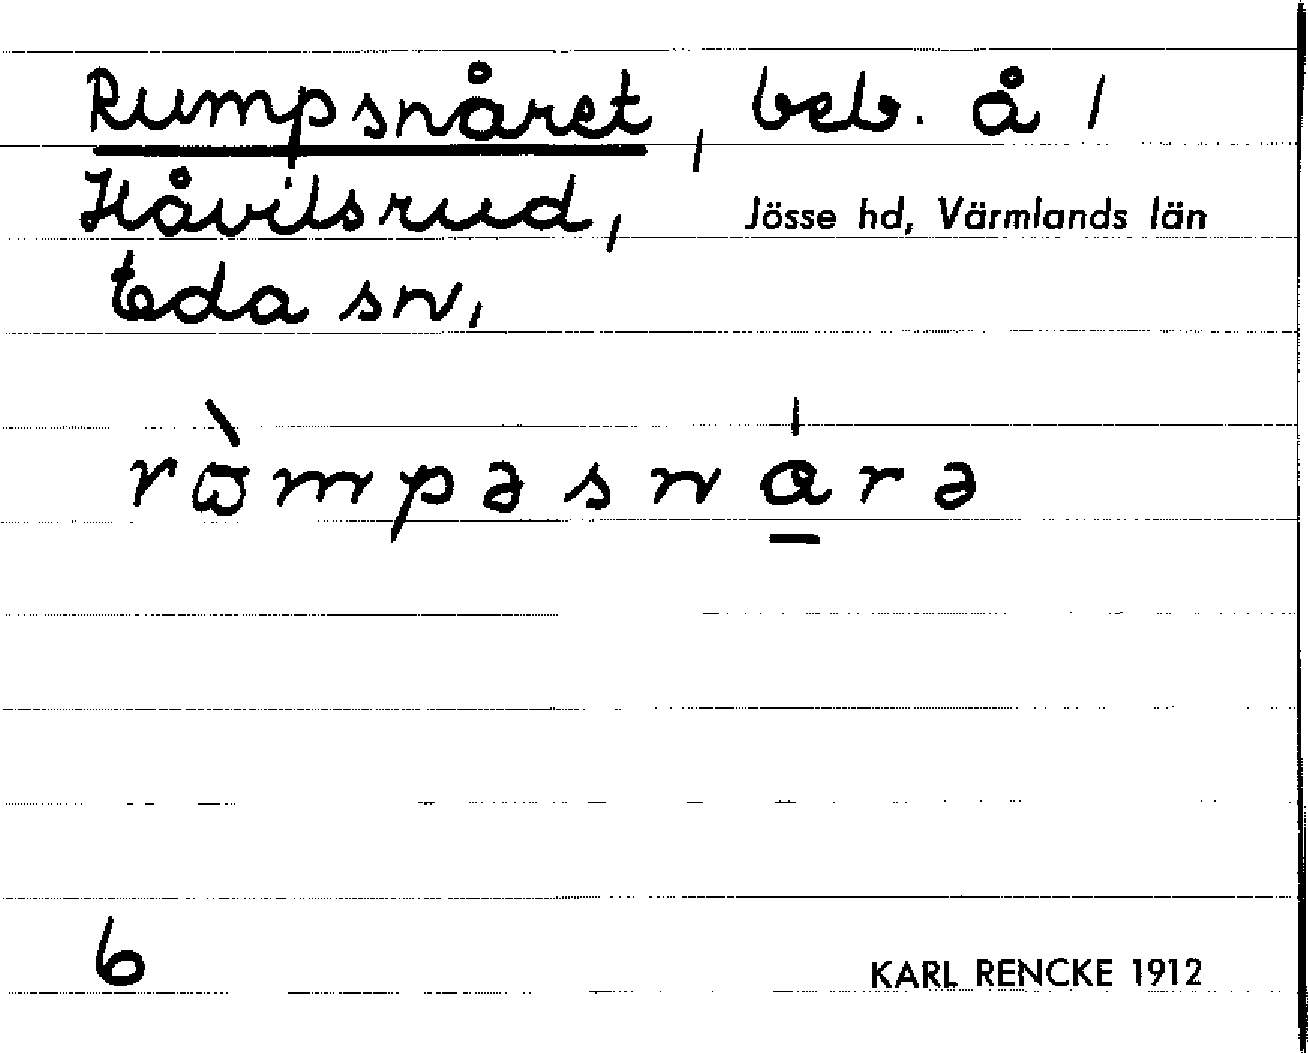 Rumpsnåret, beb. å 1
Håvilsrud, Jösse hd, Värmlands län
Eda sn,
rɷ̀mpəsnárə
6
KARL RENCKE 1912